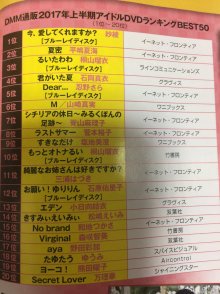 DMM通販2017年上半期アイドルDVDランキングBEST50
(1位〜20位)
1位 今、愛してくれますか? 妙綾 イーネット・フロンティア
[ブルーレイディスク]
2位 夏密 平嶋夏海 イーネット・フロンティア
3位 るいたわわ 横山瑠衣 ラインコミュニケーションズ
[ブルーレイディスク]
4位 君がいた夏 石岡真衣 グラヴィス
[ブルーレイディスク]
5位 Dear… 忍野さら イーネット・フロンティア
[ブルーレイディスク]
6位 M 山崎真実 ワニブックス
7位 シチリアの休日 〜あんなぽっくの
足跡〜 イーネット・フロンティア
8位 ラストサマー 菜本裕子 イーネット・フロンティア
9位 すきなだけ 塩地美澄 ワニブックス
10位 もっとオトナるい 横山瑠衣 竹書房
[ブルーレイディスク]
11位 綺麗なお姉さんは好きですか? イーネット・フロンティア
三浦はつき
12位 お願い!ゆりりん 石原佑里子 グラヴィス
[ブルーレイディスク]
13位 エデン 小日向結衣 双葉社
14位 きすみぃえいみぃ 松嶋えいみ イーネット・フロンティア
No brand 和地つかさ 竹書房
Virginal 森咲智美 双葉社
aya 妙田彩佳 スパイスビジュアル
たゆたう ゆうみ Aircontrol
ヨーコ! 熊田曜子 シャイニングスター
Secret Lover 万理華